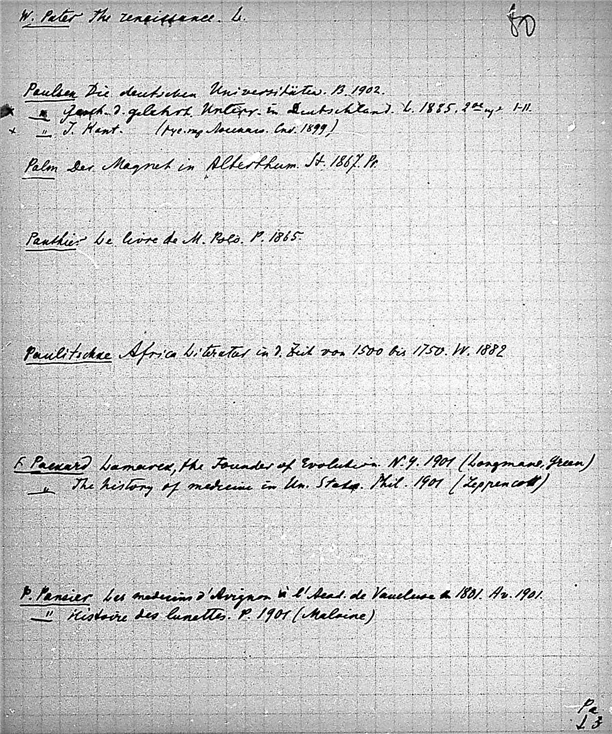 W. Pater The renaissance. L.
80
Paulsen Die deutschen Universitäten. B. 1902.
" Gesch. d. gelehrt. Unterr. in Deutschland. L. 1885. I-II.
x " J. Kant. 1899)
Palm Der Magnet in Alterthum. St. 1867. Pr.
Pauthier Le livre de M. Polo. P. 1865.
Paulitschke Africa Literatur in d. Zeit von 1500 bis 1750. W. 1882
Packard Lamarck, the Founder of Evolution. N.Y. 1901 (Longmans, Green)
" The history of medicine in Un. States. Phil. 1901 (Lippencott)
P. Pansier Les medecins d'Avignon à l'Acad. de Vaucluse 1801. Av. 1901.
" Histoire des lunettes. P. 1901 (Maloine)
Pa